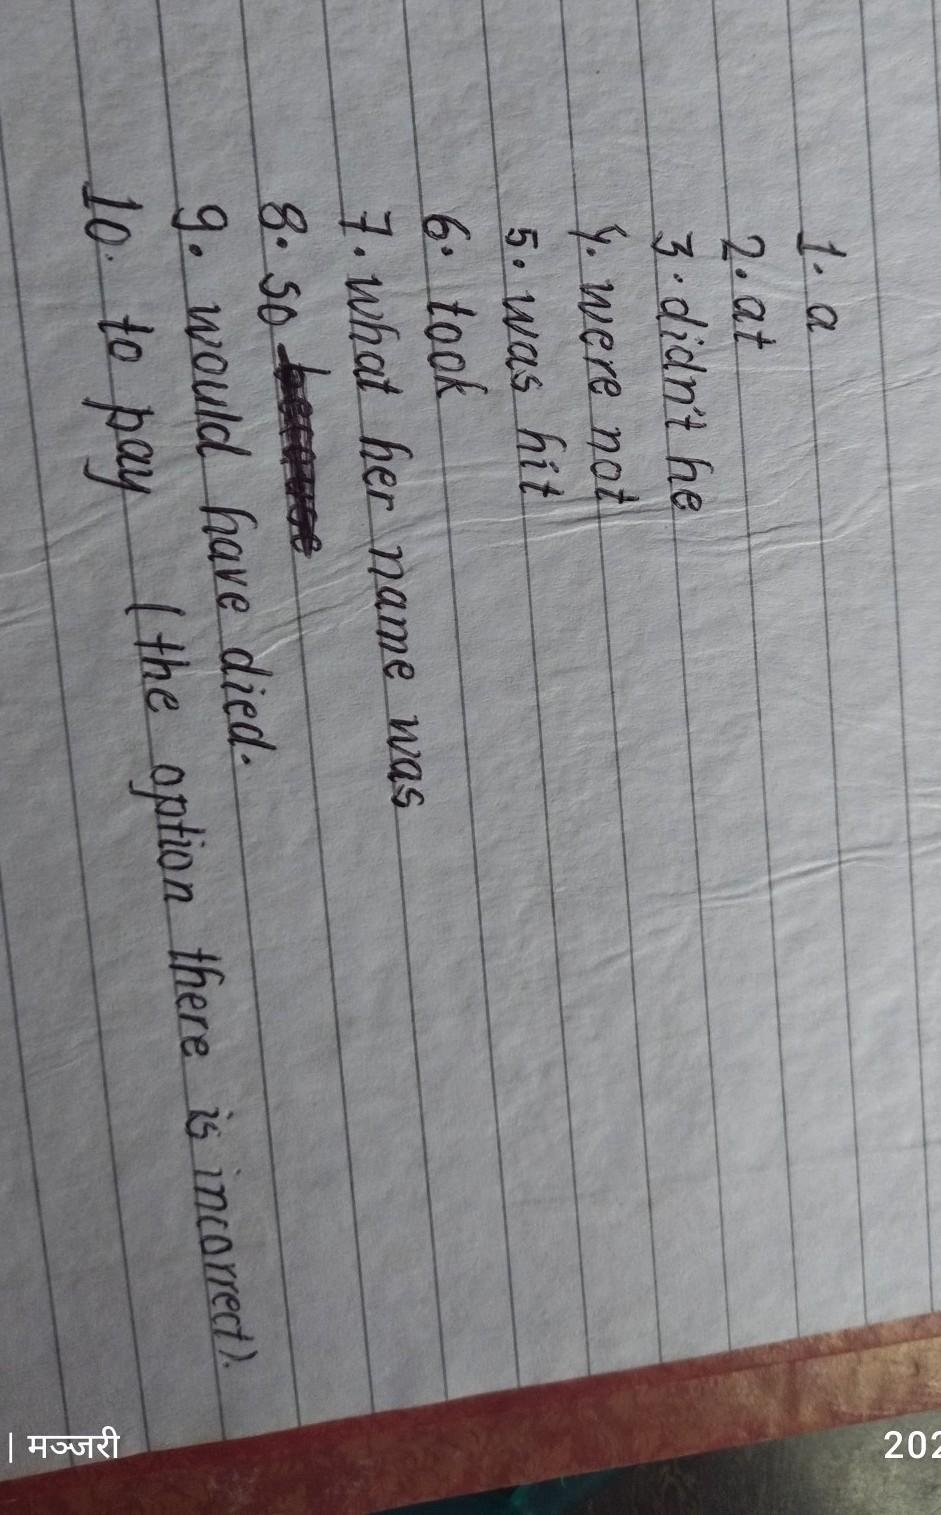 1. a
2. at
3. didn't he
4. were not
5. was hit
6. took
7. what her name was
8. so
9. would have died.
10. to pay (the option there is incorrect).
| मञ्जरी
202